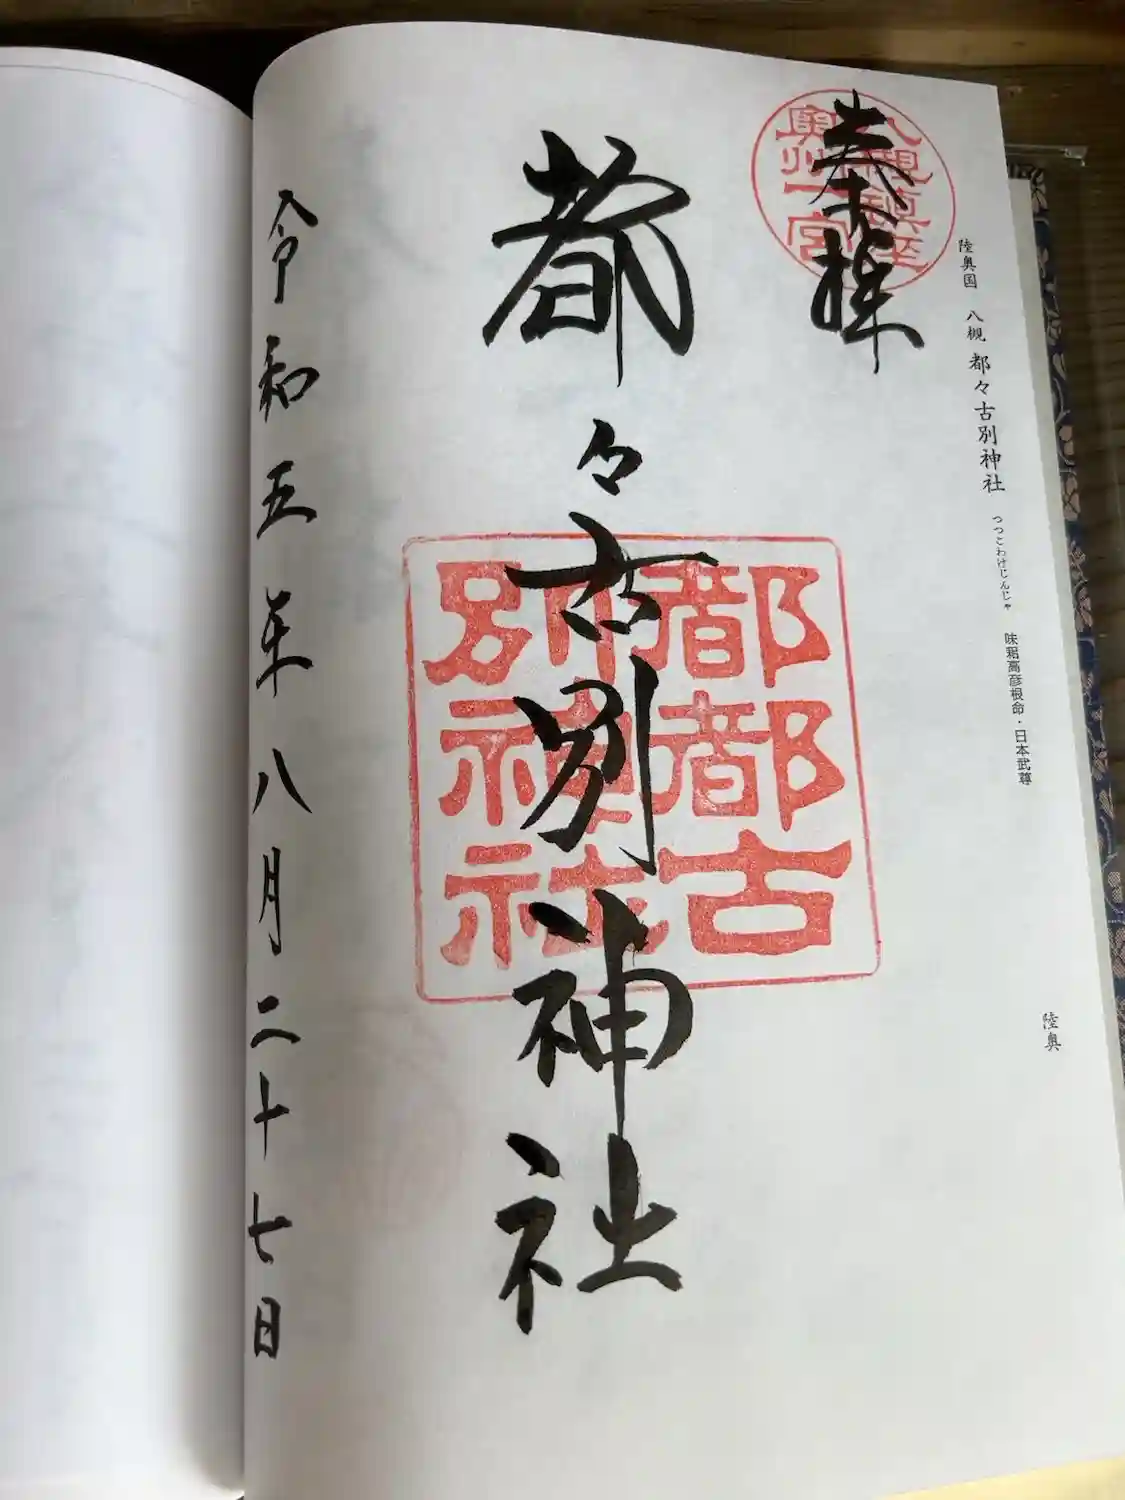 陸奥国 八槻 都々古別神社 つつこわけじんじゃ 味耜高彦根命・日本武尊
陸奥
奉拝
八槻鎮座
奥州一宮
都々古別神社
都都古
別神社
令和五年八月二十七日